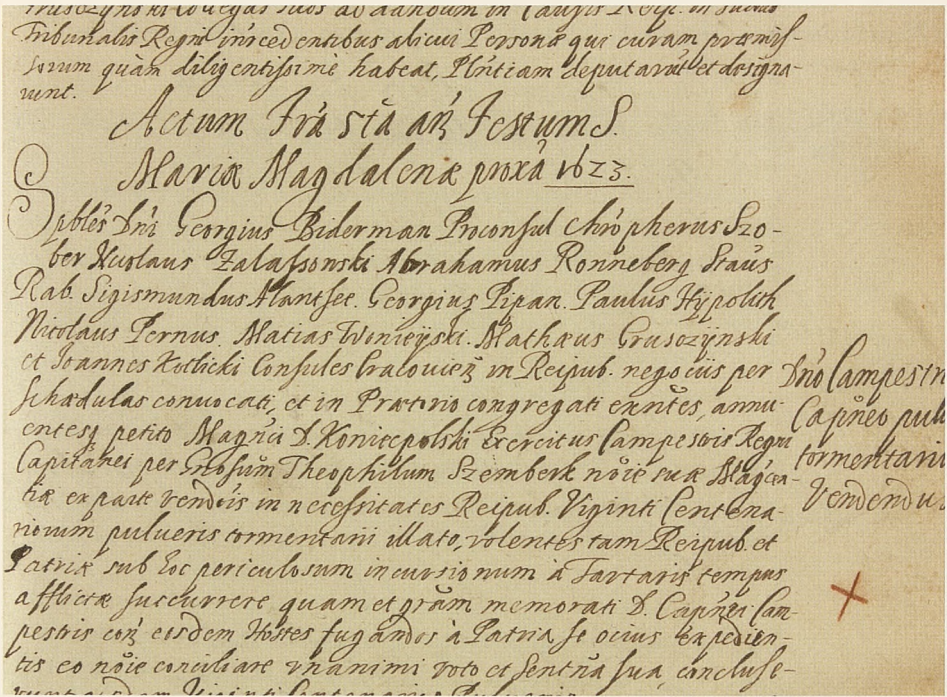 Tribunalis Regni incedentibus alicui Personæ qui curam præmis-
sorum quàm diligentissime habeat, Plñtiam deputarũt et designa-
runt.
Actum Fr̃ia 5tã añ Festum S.
Mariæ Magdalenæ proxã 1623.
Spbles Dñi Georgius Biderman Proconsul Chr̃opherus Szo-
ber Nicolaus Zalassonski Abrahamus Ronneberg Staus
Rab. Sigismundus Alantsee. Georgius Pipan. Paulus Hÿpolith
Nicolaus Pernus. Matias Woniejski. Mathæus Grusozÿnski
et Joannes Kotlicki Consules Cracovieñ in Reipub. negociis per
schædulas convocati, et in Prætorio congregati exñtes, annu-
entesq petito Magñci D. Koniecpolski Exercitus Campestris Regni
Capitãnei per Gñosum Theophilum Szemberk nõie suæ Magñcæn-
tiæ ex parte vendẽis in necessitates Reipub. Viginti Centena-
riorum pulueris tormentarii illato, volentes tam Reipub. et
Patriæ sub hoc periculosum incursionum à Tartaris tempus
afflictæ succurrere quam et grãm memorati D. Capñei Cam-
pestris eoñ eisdem Hostes fugandos à Patria se ocius expedien-
tis eo nõie conciliare vnanimi voto et sentñã sua, concluse-
runt eisdem Viginti Centenario Pulveris
Dño Campestr
Capñeo pul
tormentarii
Vendendu